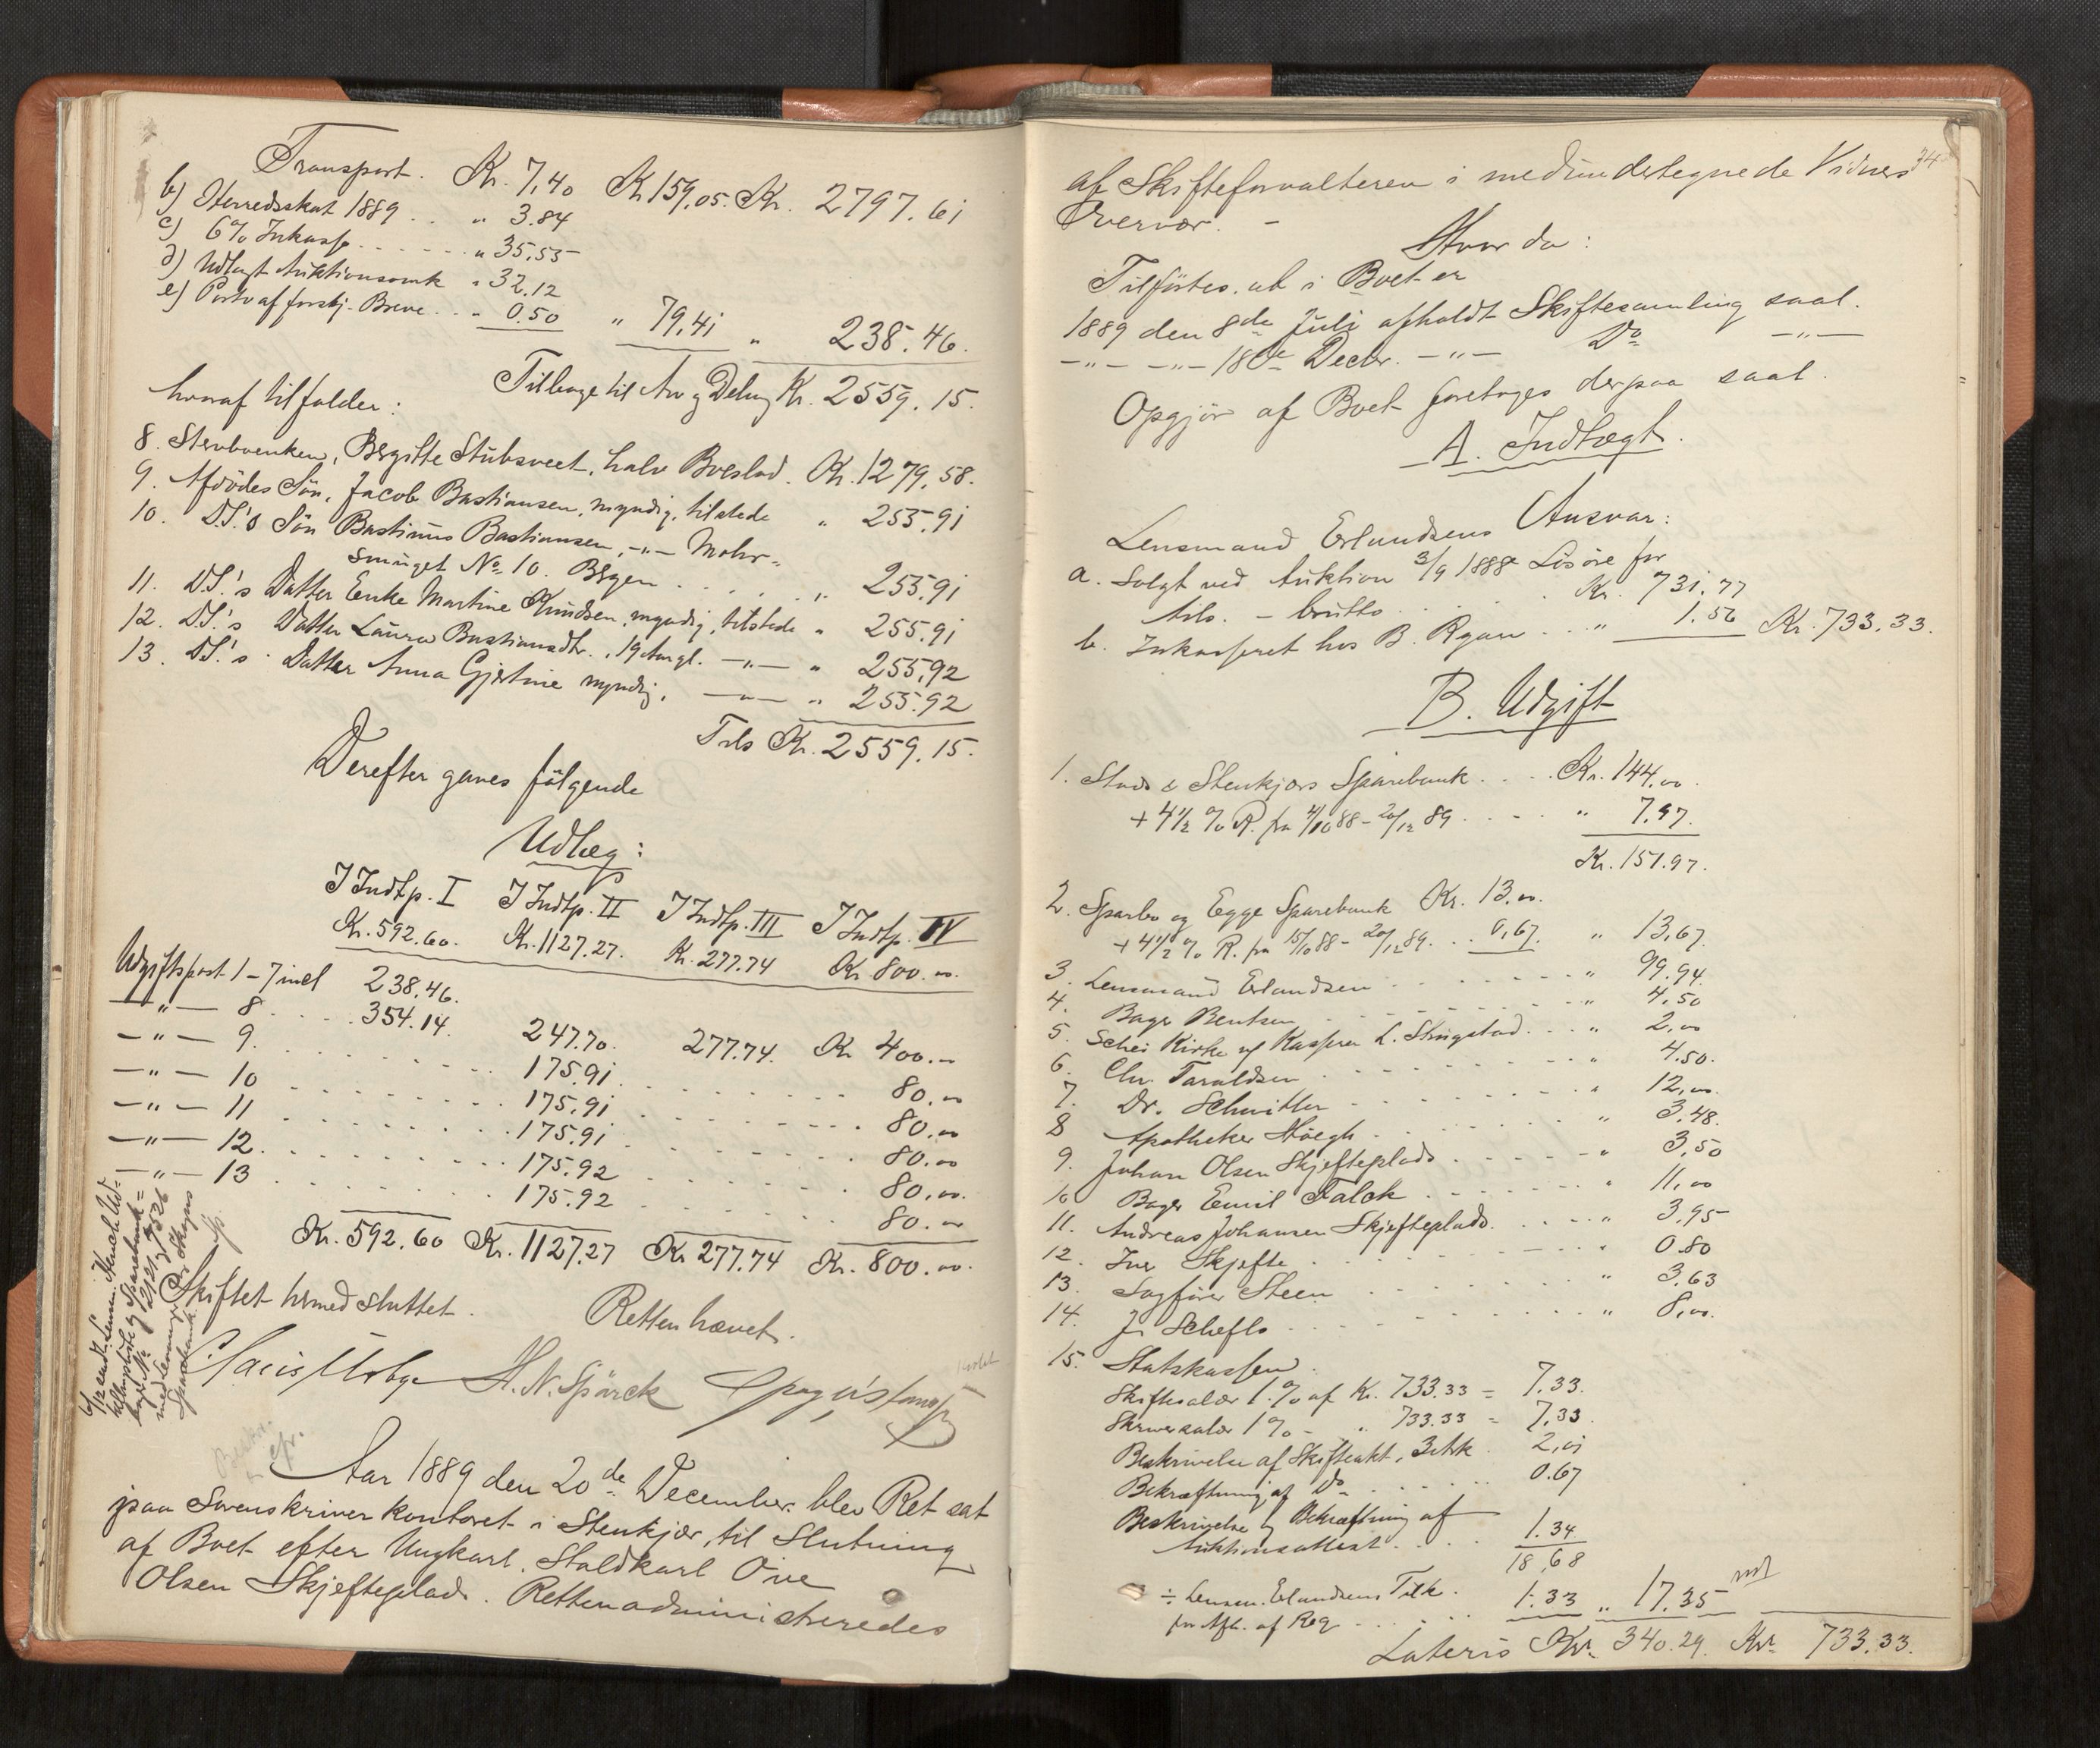 Transport. Kr. 7,40 Kr 159,05. Kr. 2797.61
b) Herredsskat 1889 . . " 3.84
c) 6% Inkasso - - - - - " 35,55
d) Udlagt Auktionsomk " 32.12
e) Porto af forskj. Breve . . " 0.50 " 79,41 " 238.46.
Tilbage til Arv og Deling Kr. 2559.15.
hvoraf tilfalder:
8. Stervboenken, Bergitte Stubsveet, halv Boeslod. Kr. 1279,58.
9. Afdödes Sön, Jacob Bastiansen, myndig, tilstede " 255.91
10. D.S.'s Sön Bastinus Bastiansen, -"- Mohr-
smuget No 10. Bergen . . . . " 255.91
11. D.S.'s Datter Enke Martine Knudsen, myndig, tilstede " 255.91
12. D.S.'s Datter Laura Bastiansdtr., 19 Aar gl. -"- " 255,92
13. D.S.'s Datter Anna Gjertine myndig, -"- " 255.92
Tils Kr. 2559.15.
Derefter gaves fölgende
Udlæg:
I Indtp. I I Indtp. II I Indtp. III I Indtp. IV
Kr. 592.60. Kr. 1127.27. Kr. 277.74 Kr 800.00.
Udgiftspost 1-7 incl 238.46.
-"- 8. . . . 354.14. 247.70. 277.74. Kr 400.-
-"- 9. 175.91. 80.00
-"- 10 175.91 80.00
-"- 11 175.91 80.00
-"- 12. 175.92 80.00.
-"- 13 175.92 80.00
Kr. 592.60 Kr. 1127.27 Kr 277.74 Kr. 800.00.
Skiftet hermed sluttet. Retten hævet.
H. N. Spärck
Aar 1889 den 20de December blev Ret sat
paa Sorenskriverkontoret i Stenkjær, til Slutning
af Boet efter Ungkarl, Staldkarl Ove
Olsen Skjefteplads. Retten administreredes
34
af Skifteforvalteren i medundertegnede Vidners
Overvær. -
Hvor da:
Tilförtes, at i Boet er
1889 den 8de Juli afholdt Skiftesamling saal.
-"- -"- 18de Decbr. -"- Do -"-
Opgjör af Boet foretages derpaa saal.
A. Indtægt.
Lensmand Erlandsens Ansvar:
a. Solgt ved Auktion 3/9 1888 Lösöre for
tils. - brutto . . . . . Kr. 731.77
b. Inkasseret hos B. Ryan . . " 1.56 Kr. 733.33.
B. Udgift
1. Stods & Stenkjærs Sparebank . . . . Kr. 144.00.
+ 4 1/2 % R. fra 4/10 88 - 20/12 89 . . . . . " 7.97.
Kr. 151.97.
2. Sparbo og Egge Sparebank Kr. 13.00.
+ 4 1/2 % R. fra 15/10 88 - 20/12 89. . . 0,67. " 13,67.
3. Lensmand Erlandsen . . . . . . " 99.94.
4. Bager Bentsen . . . . . . " 4.50
5. Schei Kirke v/ Kasserer L. Strugstad. . . " 2.00
6. Chr. Taraldsen . . . . . . " 4.50.
7. Dr. Schmitler . . . . . . " 12,00.
8 Apotheker Höegh . . . . . . " 3.48.
9. Johan Olsen Skjefteplads . . . . . . " 3,50
10 Bager Emil Falck . . . . . . " 11,00
11. Andreas Johansen Skjefteplads. . . . . " 3.95
12. Iver Skjefte . . . . . . " 0.80
13. Sagförer Steen . . . . . . " 3,63
14. J. Schefte . . . . . . " 8,00.
15. Statskassen.
Skiftesalær 1.% af Kr. 733.33 = 7.33.
Skriversalær 1% - " 733.33 = 7.33
Beskrivelse af Skifteakt, 3 Ark . 2,01
Bekræftning af Do . . . . . 0.67
Beskrivelse og Bekræftning af
Auktionsattest . . . . 1.34
18,68
÷ Lensm. Erlandsens Tilk. 1.33 " 17.35
for Afh. af Reg . . . .
Lateris Kr. 340.29. Kr. 733.33.